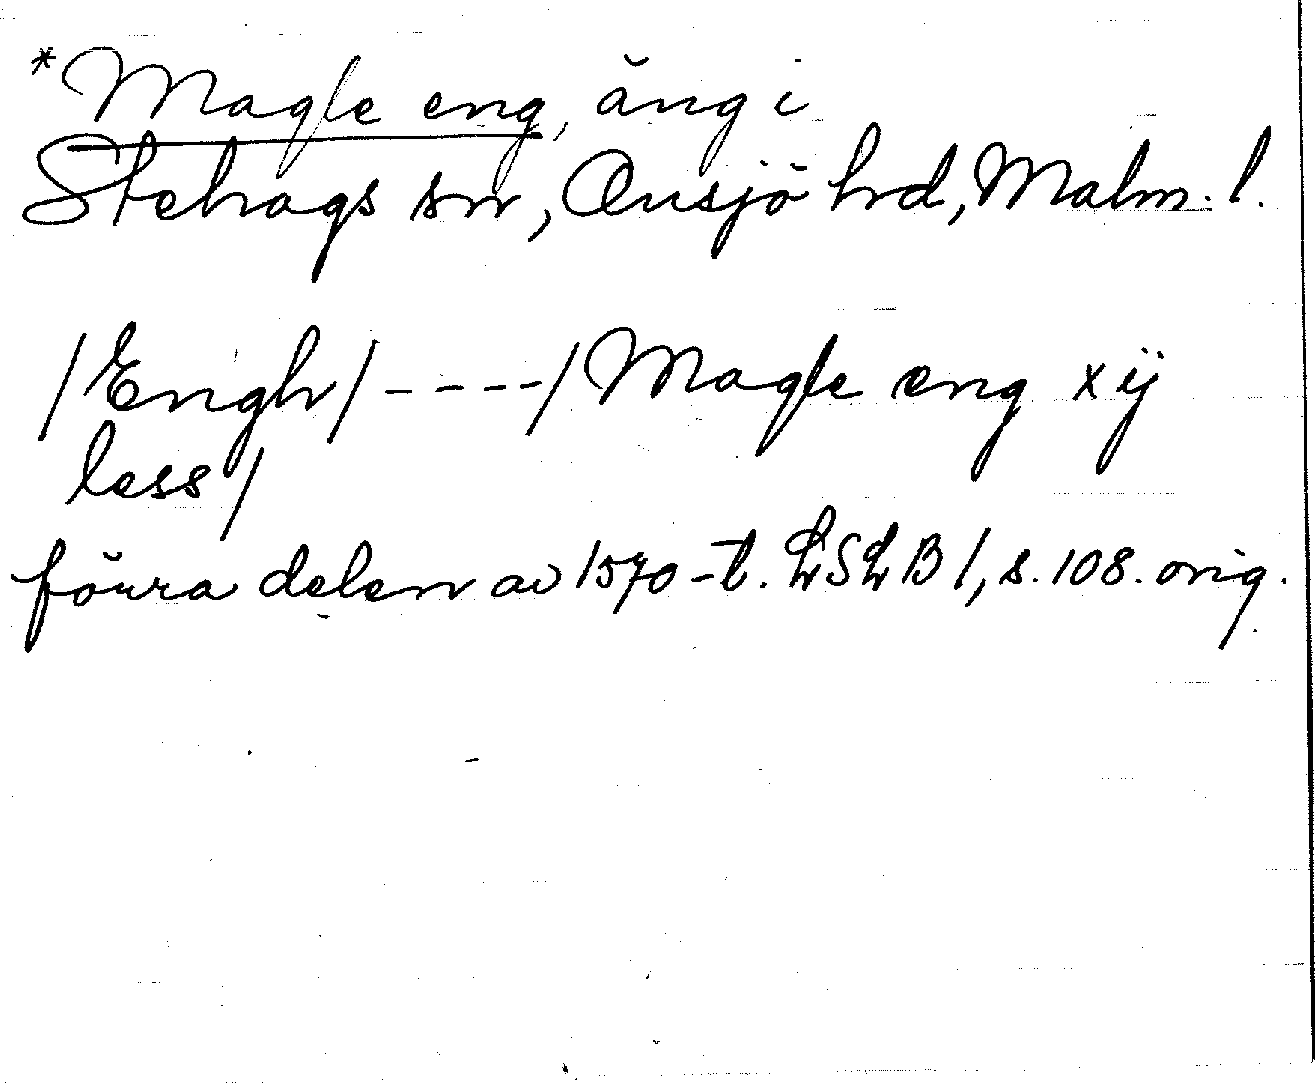 *Magle eng, äng i
Stehags sn, Onsjö hrd, Malm. l.
/Engh/ - - - - / Magle eng xij
less /
förra delen av 1570-t. LSLB 1, s. 108. orig.